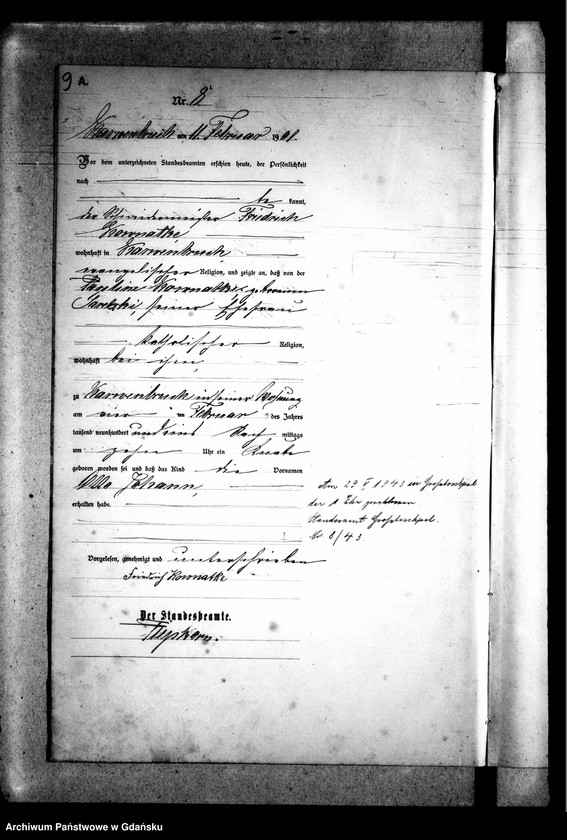 9 A.
Nr. 8
Karwenbruch am 11. Februar 1901.
Vor dem unterzeichneten Standesbeamten erschien heute, der Persönlichkeit
nach
be kannt,
der Schneidermeister Friedrich
Kownatke
wohnhaft in Karwenbruch
evangelischer Religion, und zeigte an, daß von der
Kownatke geborenen
seiner Ehefrau
katholischer Religion,
wohnhaft bei ihm,
zu Karwenbruch in seiner Wohnung
am vier ten Februar des Jahres
tausend neunhundert und eins Nach mittags
um zehn Uhr ein Knabe
geboren worden sei und daß das Kind die Vornamen
Otto Johann,
erhalten habe.
Am 29 V 1943 in
der 1 Ehe
Standesamt
Nr 8/43
Vorgelesen, genehmigt und unterschrieben
Friedrich Kownatke
Der Standesbeamte.
Archiwum Państwowe w Gdańsku